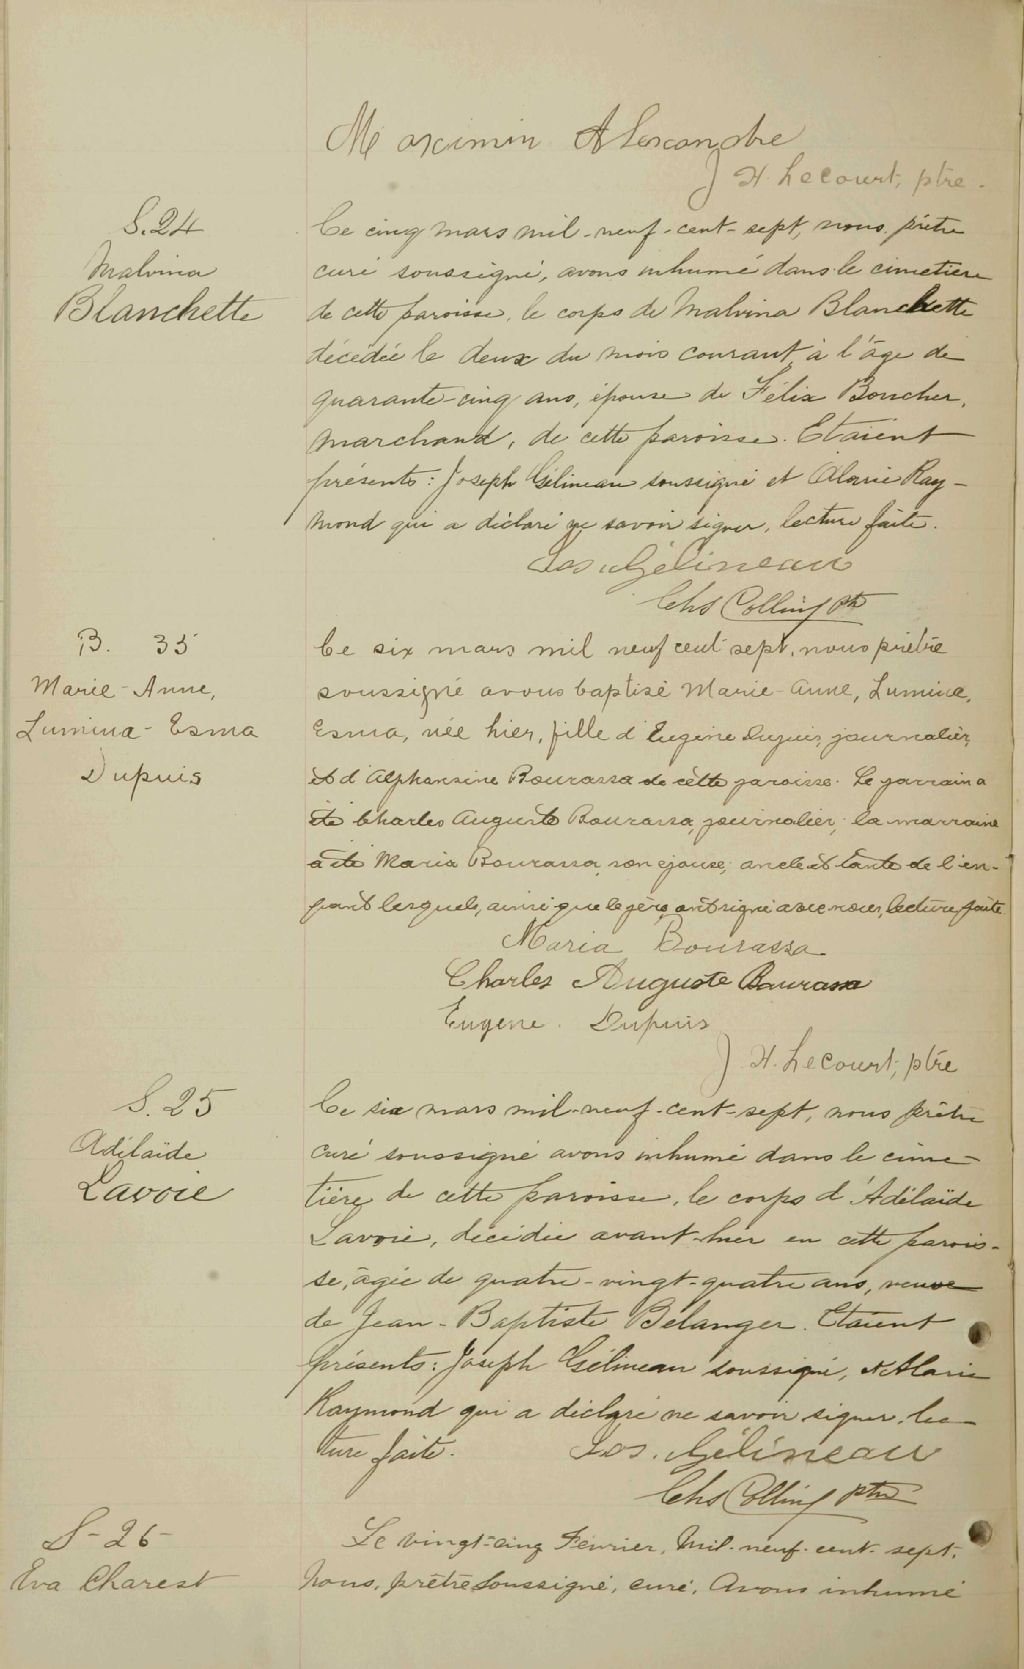 Maximin Alexandre
J H. Lecourt, ptre.
S. 24
Malvina
Blanchette
Ce cinq mars mil-neuf-cent-sept, nous prêtre
curé soussigné, avons inhumé dans le cimetière
de cette paroisse, le corps de Malvina Blanchette
décédée le deux du mois courant, à l'âge de
quarante-cinq ans, épouse de Félix Boucher,
marchand, de cette paroisse. Etaient
présents: Joseph Gélineau soussigné et Alarie Ray-
mond qui a déclaré ne savoir signer, lecture faite.
Jos. Gélineau
Chs Collin ptr
B. 35
Marie-Anne,
Lumina-Esma
Dupuis
Ce six mars mil neuf cent sept, nous prêtre
soussigné avons baptisé Marie-Anne, Lumina,
Esma, née hier, fille d'Eugène Dupuis, journalier,
et d'Alphonsine Bourassa de cette paroisse. Le parrain a
été Charles Auguste Bourassa, journalier; la marraine
a été Maria Bourassa, son épouse; oncle et tante de l'en-
fant lesquels, ainsi que le père, ont signé avec nous, lecture faite
Maria Bourassa
Charles Auguste Bourassa
Eugene. Dupuis
J H. Lecourt, ptre
S. 25
Adélaïde
Lavoie
Ce six mars mil-neuf-cent-sept, nous prêtre
curé soussigné avons inhumé dans le cime-
tière de cette paroisse, le corps d'Adélaïde
Lavoie, décédée avant-hier en cette parois-
se, âgée de quatre-vingt-quatre ans, veuve
de Jean-Baptiste Bélanger. Etaient
présents: Joseph Gélineau soussigné, et Alarie
Raymond qui a déclaré ne savoir signer, lec-
ture faite.
Jos. Gélineau
Chs Collin ptre
S-26-
Eva Charest
Le vingt-cinq Février, Mil-neuf-cent-sept,
Nous, prêtre soussigné, curé, Avons inhumé